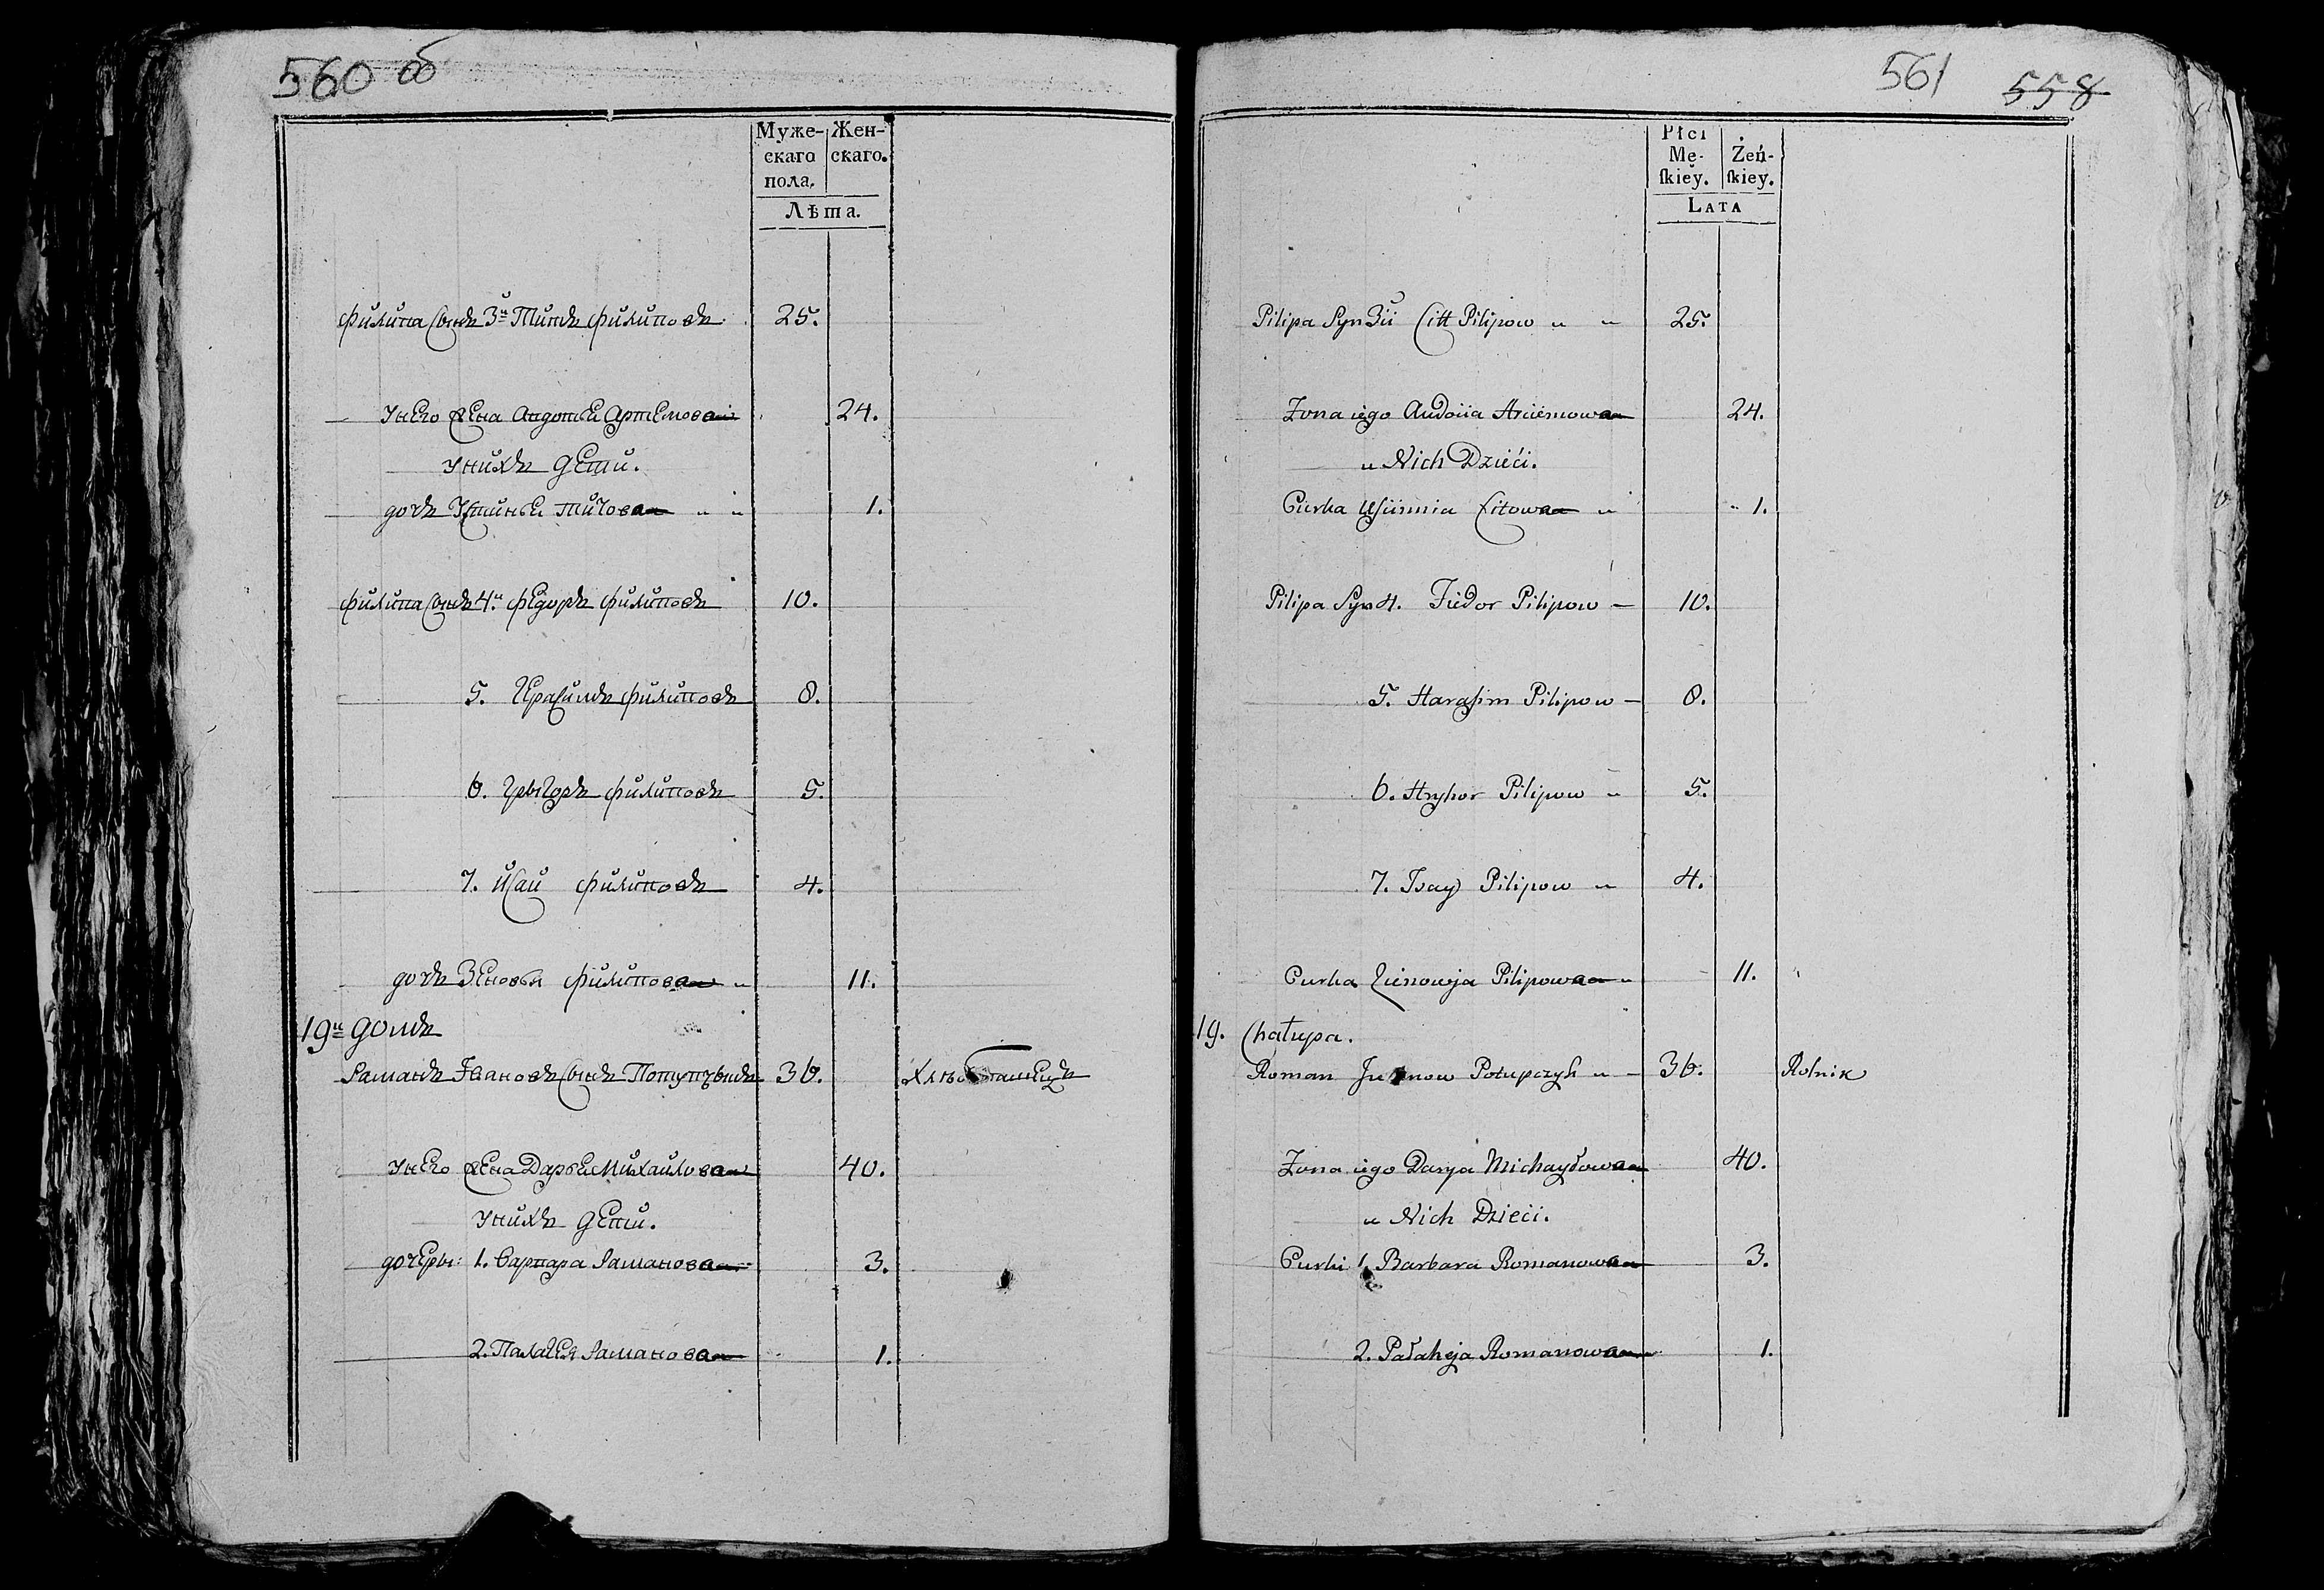 560 об
Муже- Жен-
скаго скаго.
пола.
Лѣта.
Филипа Сынъ 3й Титъ Филиповъ 25.
Унего жена Андотьи Артемова 24.
Унихъ дети.
дочь Устиньи Титова 1.
Филипа Сынъ 4й Федоръ Филиповъ 10.
5. Герасимъ Филиповъ 8.
6. Грыгоръ Филиповъ 5.
7. Исай Филиповъ 4.
дочь Зеновья Филипова 11.
19й домъ
Раманъ Ивановъ Сынъ Потупчыкъ 36.
Унего жена Дарьи Михайлова 40.
Унихъ дети.
дочеры: 1. Варвара Раманова 3.
2. Палагея Раманова 1.
561 558
Płci
Mę- Żeń-
skiey. skiey.
LATA
Pilipa Syn 3ii Citt Pilipow 25.
Zona iego Audocia Arciemowa 24.
u Nich Dzieci.
Curka Usciinnia Citowa 1.
Pilipa Syn 4. Fiedor Pilipow 10.
5. Harasim Pilipow 8.
6. Hryhor Pilipow 5.
7. Isay Pilipow 4.
Curka Zienowja Pilipowa 11.
19. Chałupa.
Roman Iwanow Potupczyk 36. Rolnik
Zona iego Darya Michayłowa 40.
u Nich Dzieci.
Curki 1. Barbara Romanowa 3.
2. Pałaheja Romanowa 1.